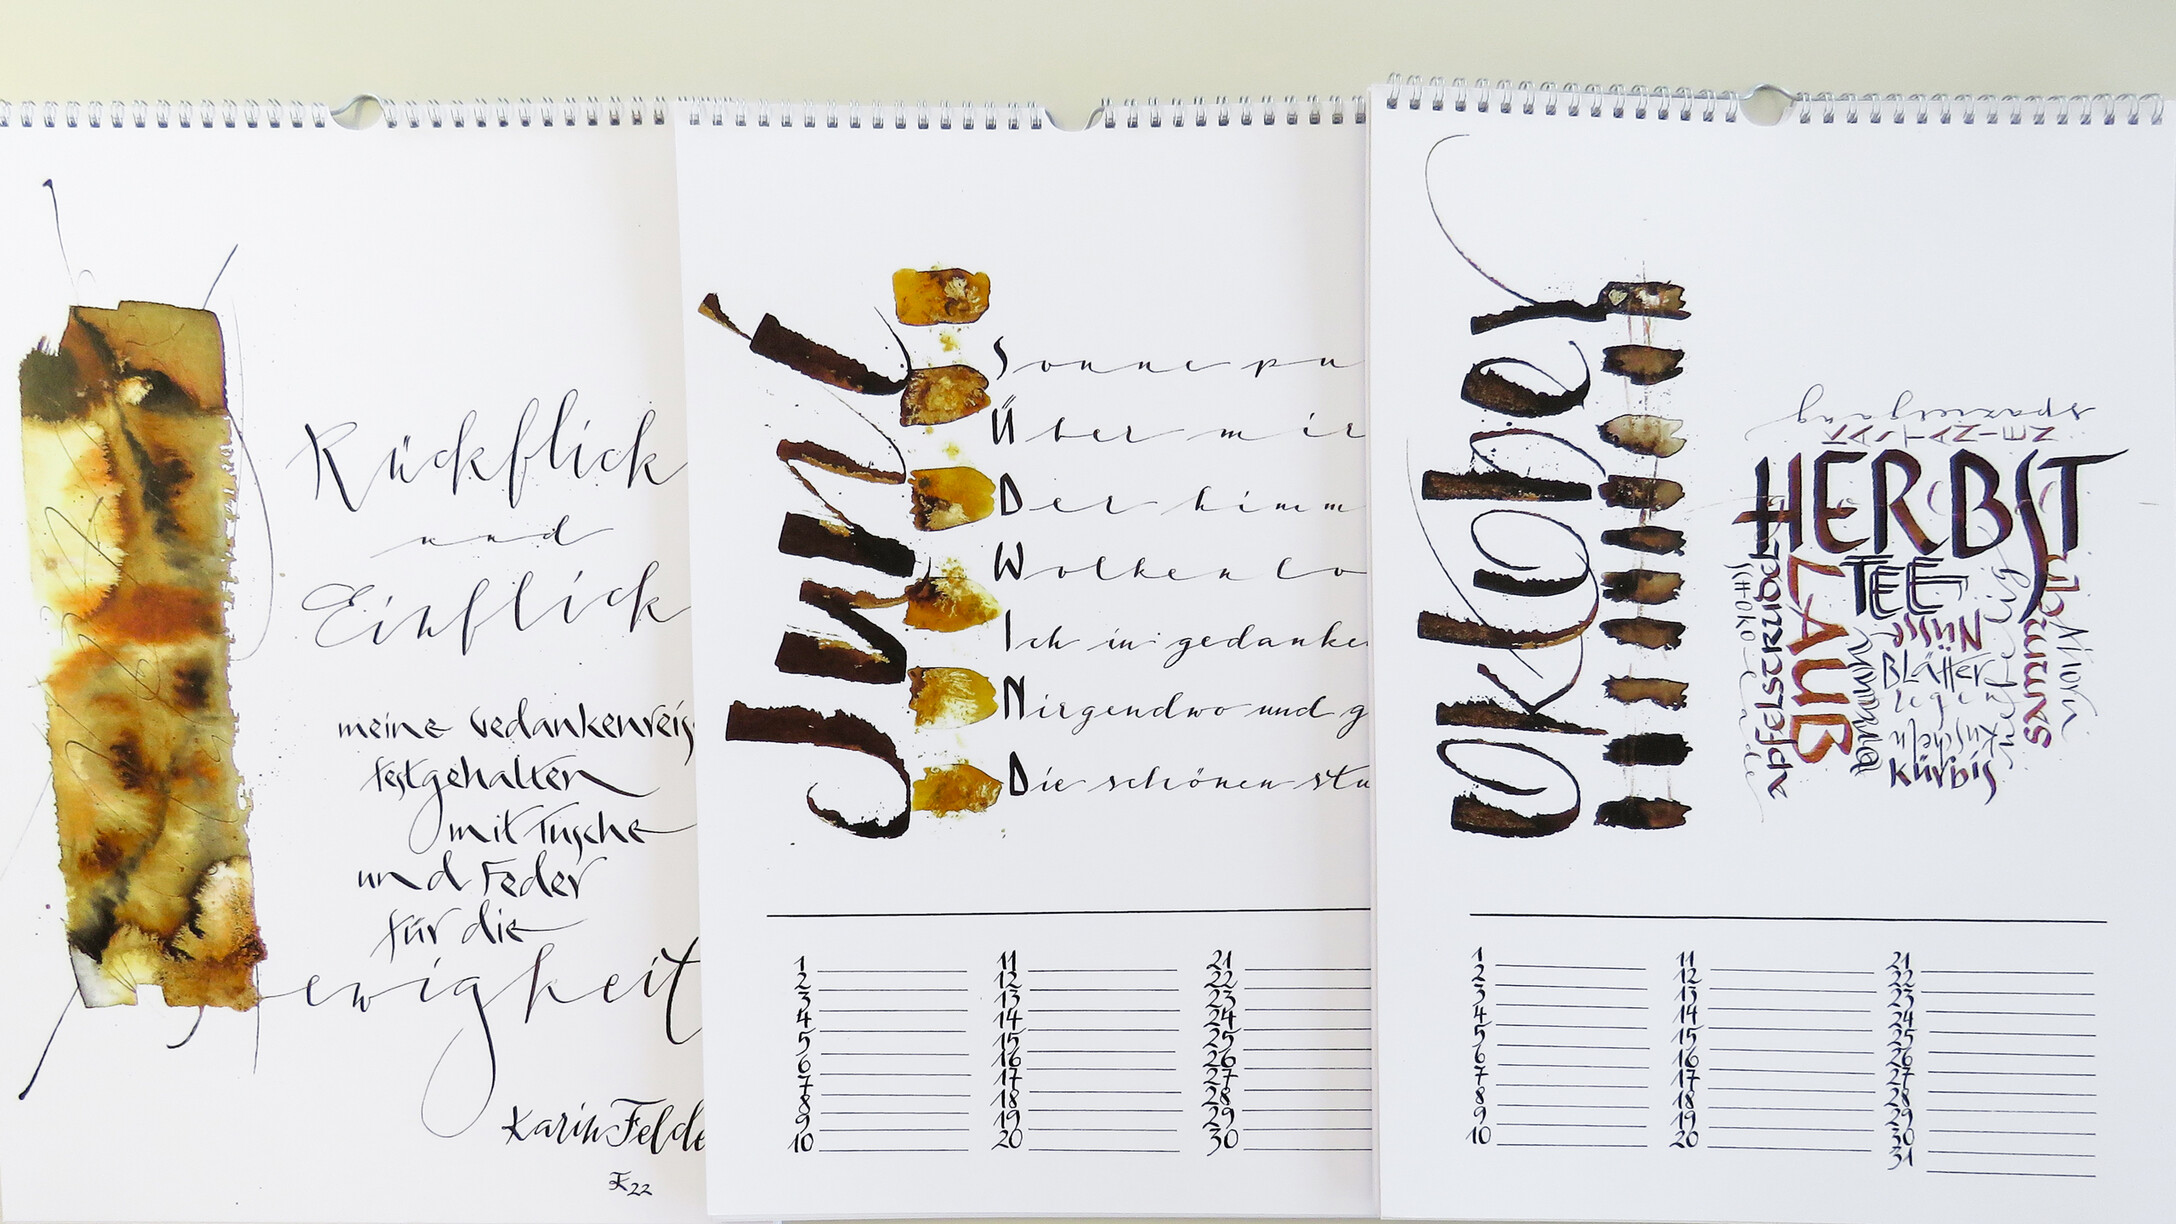 Rückblick
und
Einblick
meine Gedankenreis
festgehalten
mit Tusche
und Feder
für die
ewigkeit
Karin Felde
22
Juni
Sonne pu
Über mir
Der himm
Wolken lo
Ich in gedanke
Nirgendwo und g
Die schönen stu
1 11 21
2 12 22
3 13 23
4 14 24
5 15 25
6 16 26
7 17 27
8 18 28
9 19 29
10 20 30
Oktober
spaziergang
KASTANIEN
HERBST
TEE
LAUB
apfelstrudel
SCHOKOLADE
Nüsse
BLÄTTER
rege
kuscheln
kürbis
sammeln
1 11 21
2 12 22
3 13 23
4 14 24
5 15 25
6 16 26
7 17 27
8 18 28
9 19 29
10 20 30
31